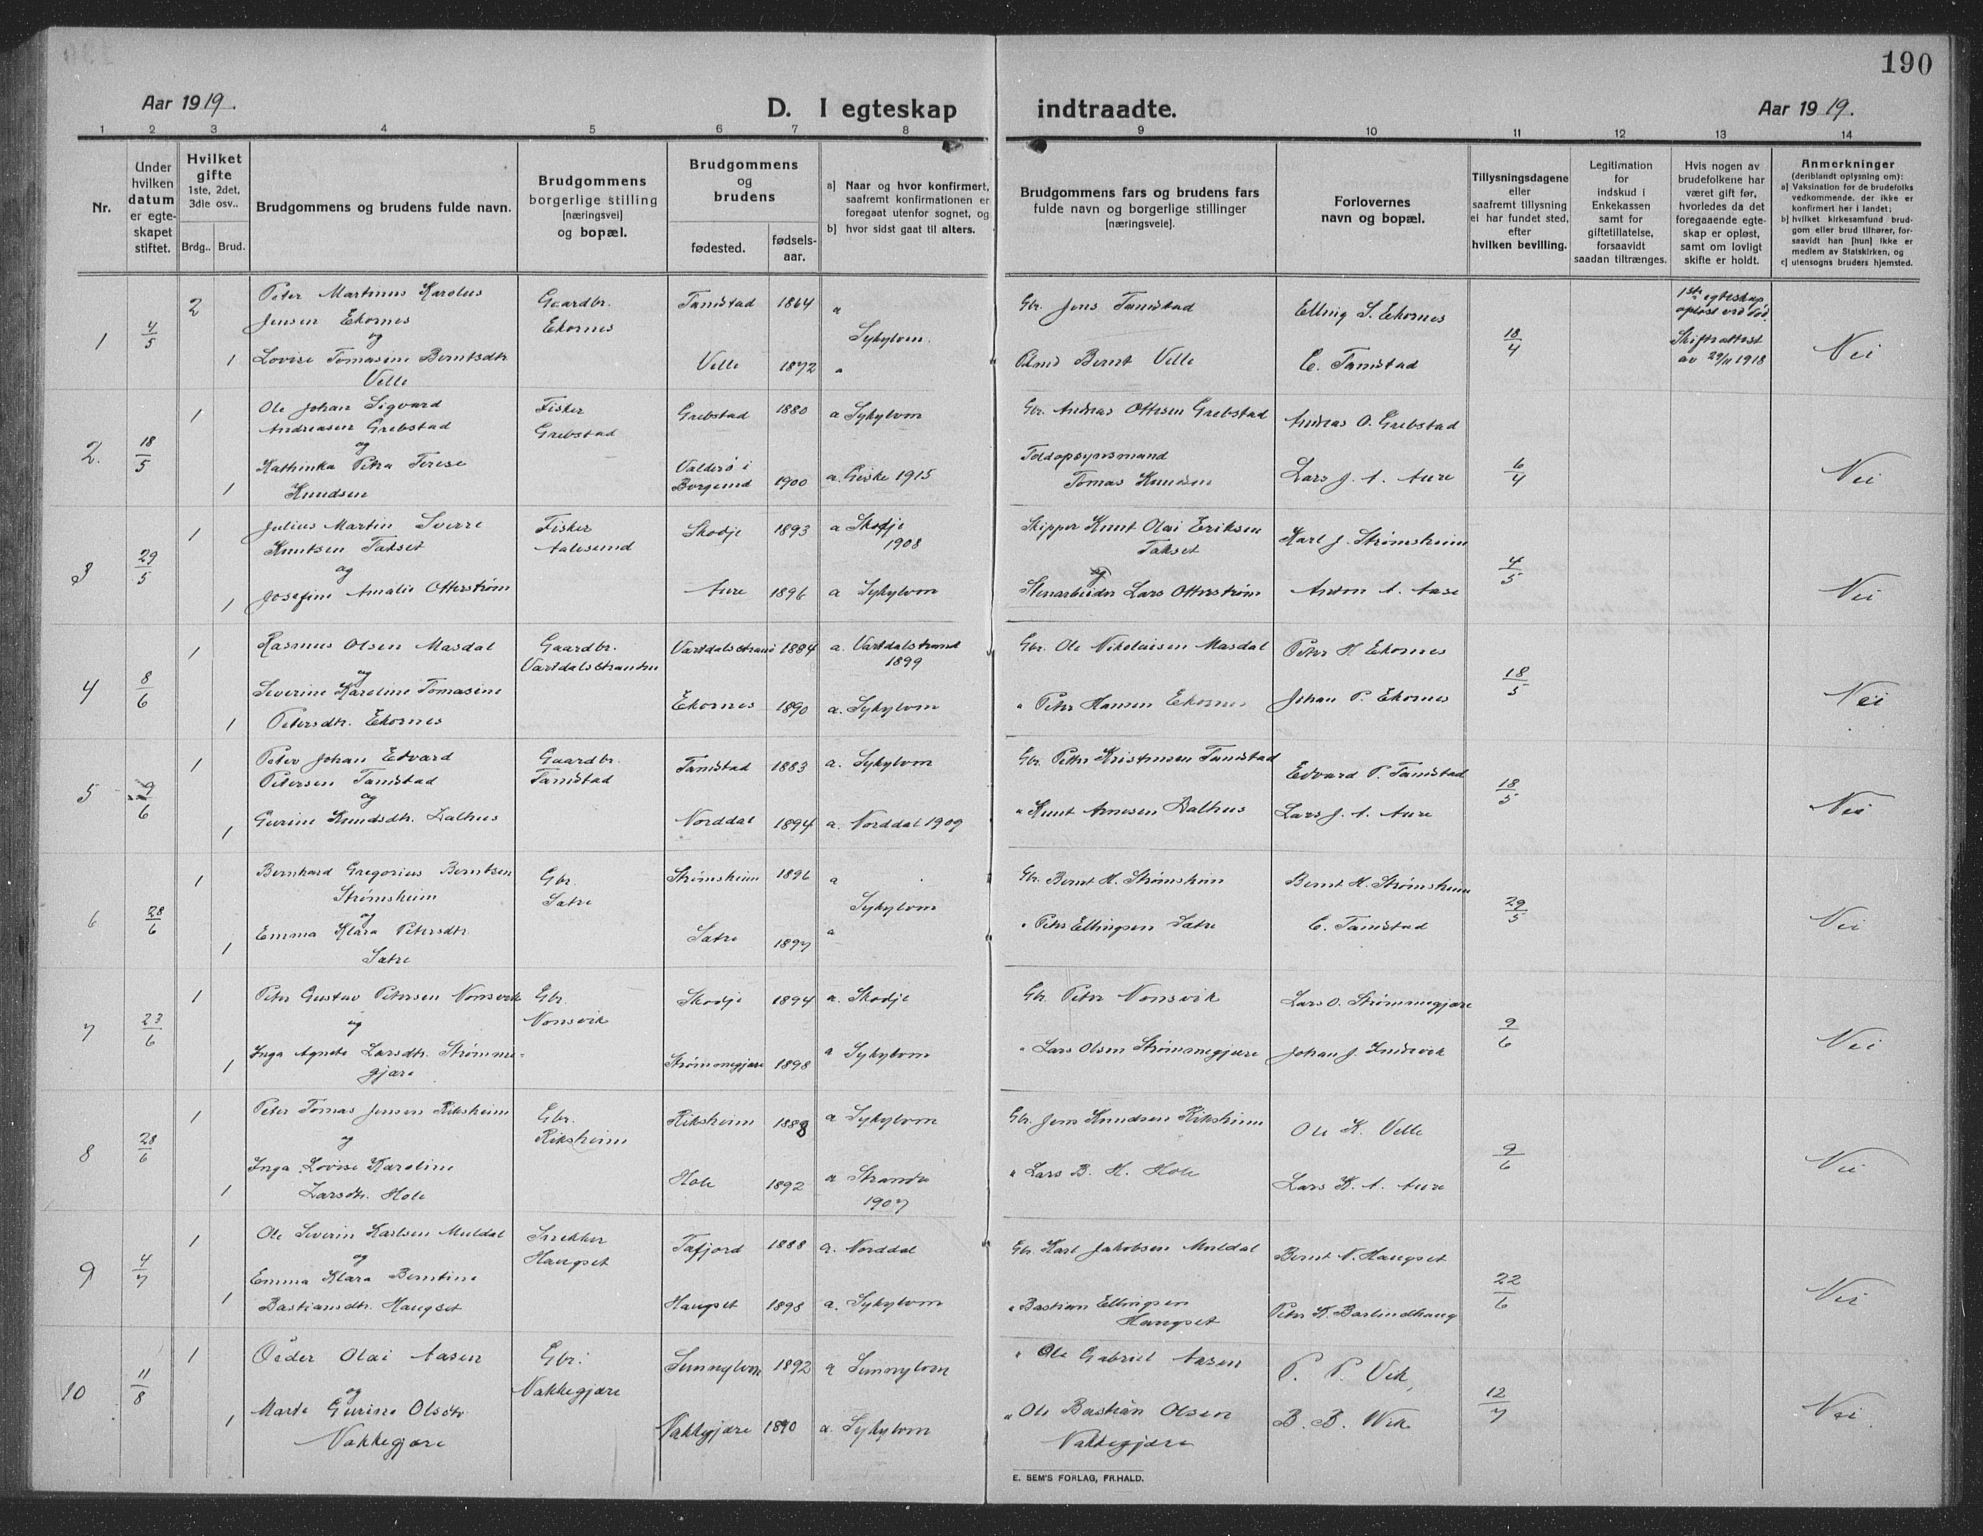 190
Aar 1919.
D. I egteskap indtraadte.
Aar 1919.
1 2 3 4 5 6 7 8 9 10 11 12 13 14
Nr.
Under hvilken datum er egteskapet stiftet.
Hvilket gifte 1ste, 2det, 3dle osv..
Brdg.. Brud.
Brudgommens og brudens fulde navn.
Brudgommens borgerlige stilling [næringsvei] og bopæl.
Brudgommens og brudens
fødested.
fødselsaar.
a] Naar og hvor konfirmert, saafremt konfirmationen er foregaat utenfor sognet, og
b] hvor sidst gaat til alters.
Brudgommens fars og brudens fars fulde navn og borgerlige stillinger [næringsveie].
Forlovernes navn og bopæl.
Tillysningsdagene eller saafremt tillysning ei har fundet sted, efter hvilken bevilling.
Legitimation for indskud i Enkekassen samt for giftetillatelse, forsaavidt saadan tiltrænges.
Hvis nogen av brudefolkene har været gift før, hvorledes da det foregaaende egteskap er opløst, samt om lovligt skifte er holdt.
Anmerkninger (deriblandt oplysning om):
a] Vaksination for de brudefolks vedkommende, der ikke er konfirmert her i landet;
b] hvilket kirkesamfund brudgom eller brud tilhører, forsaavidt han [hun] ikke er medlem av Statskirken, og
c] utensogns bruders hjemsted.
1 4/5 2 Peter Martinus Karolus Gaardbr. Tandstad 1864 " Gbr. Jens Tandstad Elling S. Ekornes 18/4 1ste egteskap opløst ved død.
Jensen Ekornes Ekornes
og Sykylven. Skifteattest
1 Lovise Tomasine Berntsdtr. Velle 1872 " Bernt Velle C. Tandstad av 29/11 1918 Nei
Velle
2. 18/5 1 Ole Johan Sigvard Fisker Grebstad 1880 a Sykylven Gbr. Andreas Ottesen Grebstad Andreas O. Grebstad 6/4
Andreasen Grebstad Grebstad
og
1 Kathinka Petra Terese Valderø i Borgund 1900 a. Giske 1915 Toldopsynsmand Tomas Knudsen Lars J. A. Aure Nei
Knudsen
3 29/5 1 Julius Martin Sverre Fisker Skodje 1893 a Skodje 1908 Skipper Knut Olai Eriksen Takset Karl J. Strømsheim 4/5
Knutsen Takset Aalesund
og og
1 Josefine Amalie Otterstrøm Aure 1896 a Sykylven Stenarbeider Lars Otterstrøm Anton A. Aase Nei
4 8/6 1 Rasmus Olsen Masdal Gaardbr. Vartdalsstranden Vartdalsstrand 1884 a. Vartdalstrand 1899 Gbr. Ole Nikolaisen Masdal Peter H. Ekornes 18/5
og
1 Severine Karoline Tomasine Ekornes 1890 a. Sykylven " Peter Hansen Ekornes Johan P. Ekornes Nei
Petersdtr. Ekornes
5 9/6 1 Peter Johan Edvard Gaardbr. Tandstad 1883 a. Sykylven Gbr. Peter Kristensen Tandstad Edvard P. Tandstad 18/5
Petersen Tandstad Tandstad
og
1 Gurine Knudsdtr. Dalhus Norddal 1894 a. Norddal 1909 " Knut Arnesen Dalhus Lars J. A. Aure Nei
6 28/6 1 Bernhard Gregorius Berntsen Gbr. Strømsheim 1896 a Gbr. Bernt H. Strømsheim Bernt H. Strømsheim 29/5
Strømsheim Satre
og Sykylven
1 Emma Klara Petersdtr. Satre 1897 a " Peter Ellingsen Satre C. Tandstad Nei
Satre
7 23/6 1 Peter Gustav Petersen Nonsvik Gbr. Skodje 1894 a. Skodje Gbr. Peter Nonsvik Lars O. Strømmegjære 9/6
og Nonsvik
1 Inga Agnete Larsdtr. Strømmegjære Strømmegjære 1898 a Sykylven " Lars Olsen Strømmegjære Johan J. Indrevik Nei
8 28/6 1 Peter Tomas Jensen Riksheim Gbr. Riksheim 1888 a Sykylven Gbr. Jens Knudsen Riksheim Ole K. Velle 9/6
og Riksheim
1 Inga Lovise Karoline Hole 1892 a Stranda 1907 " Lars B. H. Hole Lars K. A. Aure Nei
Larsdtr. Hole
9 4/7 1 Ole Severin Karlsen Muldal Snekker Tafjord 1888 a. Norddal Gbr. Karl Jakobsen Muldal Bernt N. Haugset 22/6
og Haugset
1 Emma Klara Berntine Haugset 1898 a. Sykylven " Bastian Ellingsen Haugset Peter K. Barlindhaug Nei
Bastiansdtr. Haugset
10 11/8 1 Peder Olai Aasen Gbr. Sunnylven 1892 a Sunnylven " Ole Gabriel Aasen P. P. Vik, 12/7
og Nakkegjære
1 Marte Gurine Olsdtr. Nakkegjære 1890 a. Sykylven " Ole Bastian Olsen Nakkegjære B. B. Wik Nei
Nakkegjære
E. SEM'S FORLAG, FR.HALD.